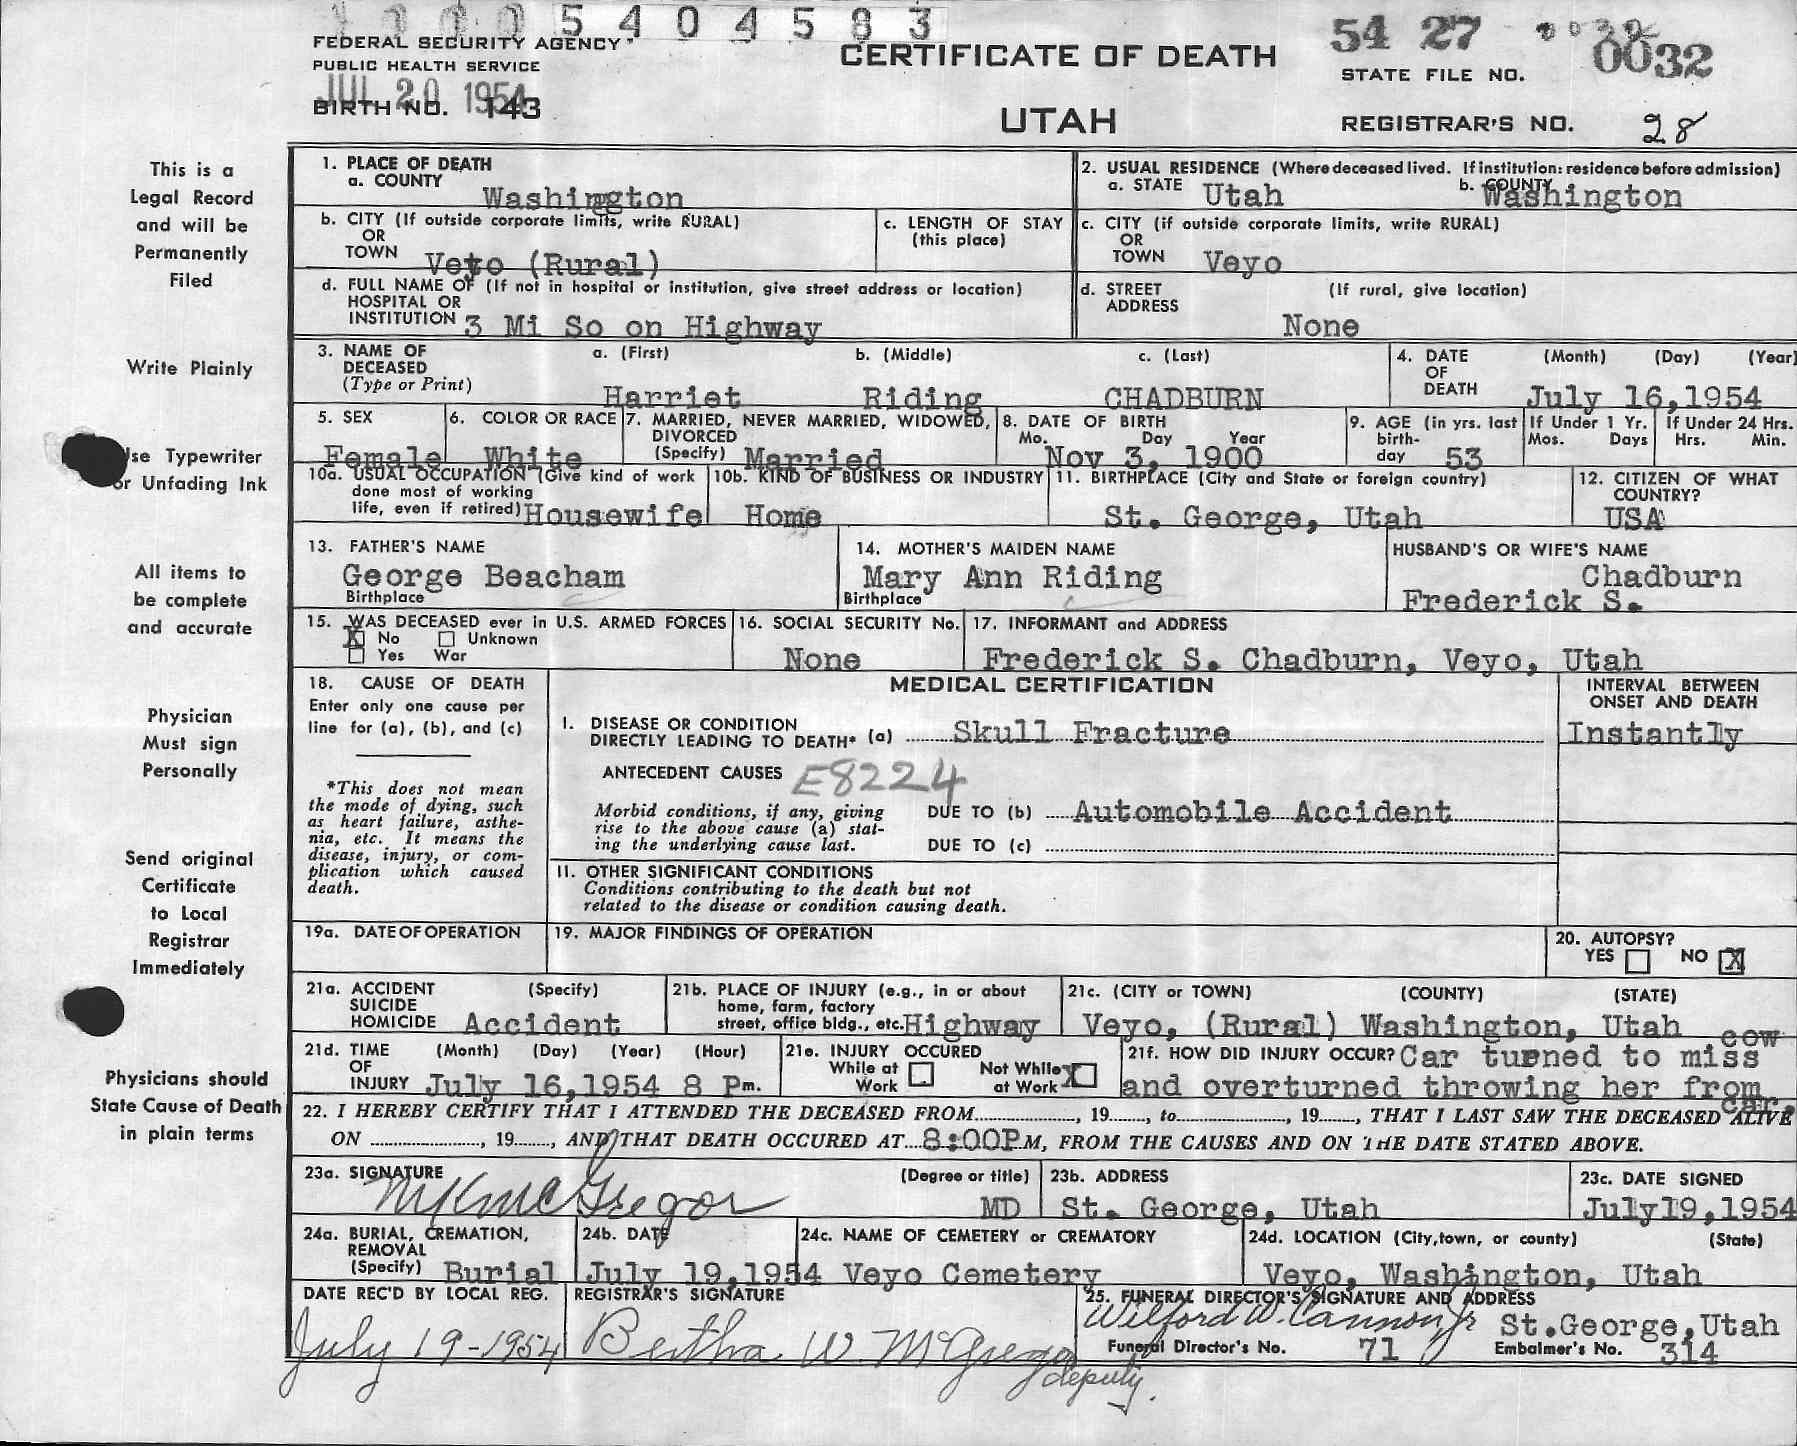 5 4 0 4 5 8 3
FEDERAL SECURITY AGENCY
PUBLIC HEALTH SERVICE
JUL 20 1954
BIRTH NO. 143
CERTIFICATE OF DEATH
UTAH
54 27 0032
STATE FILE NO.
REGISTRAR'S NO. 28
This is a
Legal Record
and will be
Permanently
Filed
Write Plainly
Use Typewriter
or Unfading Ink
All items to
be complete
and accurate
Physician
Must sign
Personally
Send original
Certificate
to Local
Registrar
Immediately
Physicians should
State Cause of Death
in plain terms
1. PLACE OF DEATH
a. COUNTY Washington
2. USUAL RESIDENCE (Where deceased lived. If institution: residence before admission)
a. STATE Utah b. COUNTY Washington
b. CITY (If outside corporate limits, write RURAL)
OR
TOWN Veyo (Rural)
c. LENGTH OF STAY
(this place)
c. CITY (if outside corporate limits, write RURAL)
OR
TOWN Veyo
d. FULL NAME OF (If not in hospital or institution, give street address or location)
HOSPITAL OR
INSTITUTION 3 Mi So on Highway
d. STREET (If rural, give location)
ADDRESS
None
3. NAME OF a. (First) b. (Middle) c. (Last)
DECEASED
(Type or Print) Harriet Riding CHADBURN
4. DATE (Month) (Day) (Year)
OF
DEATH July 16,1954
5. SEX
Female
6. COLOR OR RACE
White
7. MARRIED, NEVER MARRIED, WIDOWED,
DIVORCED
(Specify) Married
8. DATE OF BIRTH
Mo. Day Year
Nov 3, 1900
9. AGE (in yrs. last
birth-
day 53
If Under 1 Yr.
Mos. Days
If Under 24 Hrs.
Hrs. Min.
10a. USUAL OCCUPATION (Give kind of work
done most of working
life, even if retired) Housewife
10b. KIND OF BUSINESS OR INDUSTRY
Home
11. BIRTHPLACE (City and State or foreign country)
St. George, Utah
12. CITIZEN OF WHAT
COUNTRY?
USA
13. FATHER'S NAME
George Beacham
Birthplace
14. MOTHER'S MAIDEN NAME
Mary Ann Riding
Birthplace
HUSBAND'S OR WIFE'S NAME
Chadburn
Frederick S.
15. WAS DECEASED ever in U.S. ARMED FORCES
X No Unknown
Yes War
16. SOCIAL SECURITY No.
None
17. INFORMANT and ADDRESS
Frederick S. Chadburn, Veyo, Utah
18. CAUSE OF DEATH
Enter only one cause per
line for (a), (b), and (c)
*This does not mean
the mode of dying, such
as heart failure, asthe-
nia, etc. It means the
disease, injury, or com-
plication which caused
death.
MEDICAL CERTIFICATION
INTERVAL BETWEEN
ONSET AND DEATH
I. DISEASE OR CONDITION
DIRECTLY LEADING TO DEATH* (a) Skull Fracture
Instantly
ANTECEDENT CAUSES E8224
Morbid conditions, if any, giving
rise to the above cause (a) stat-
ing the underlying cause last.
DUE TO (b) Automobile Accident
DUE TO (c)
II. OTHER SIGNIFICANT CONDITIONS
Conditions contributing to the death but not
related to the disease or condition causing death.
19a. DATE OF OPERATION
19. MAJOR FINDINGS OF OPERATION
20. AUTOPSY?
YES NO X
21a. ACCIDENT (Specify)
SUICIDE
HOMICIDE Accident
21b. PLACE OF INJURY (e.g., in or about
home, farm, factory
street, office bldg., etc. Highway
21c. (CITY or TOWN) (COUNTY) (STATE)
Veyo, (Rural) Washington, Utah
21d. TIME (Month) (Day) (Year) (Hour)
OF
INJURY July 16,1954 8 Pm.
21e. INJURY OCCURED
While at Work
Not While at Work X
21f. HOW DID INJURY OCCUR? Car turned to miss cow
and overturned throwing her from car.
22. I HEREBY CERTIFY THAT I ATTENDED THE DECEASED FROM, 19, to, 19, THAT I LAST SAW THE DECEASED ALIVE
ON, 19, AND THAT DEATH OCCURED AT 8:00P M, FROM THE CAUSES AND ON THE DATE STATED ABOVE.
23a. SIGNATURE (Degree or title)
McGregor MD
23b. ADDRESS
St. George, Utah
23c. DATE SIGNED
July19,1954
24a. BURIAL, CREMATION,
REMOVAL
(Specify) Burial
24b. DATE
July 19,1954
24c. NAME OF CEMETERY or CREMATORY
Veyo Cemetery
24d. LOCATION (City,town, or county) (State)
Veyo, Washington, Utah
DATE REC'D BY LOCAL REG.
July 19-1954
REGISTRAR'S SIGNATURE
Bertha W. McGregor
deputy.
25. FUNERAL DIRECTOR'S SIGNATURE AND ADDRESS
Wilford W. Cannon Jr St.George,Utah
Funeral Director's No. 71 Embalmer's No. 314